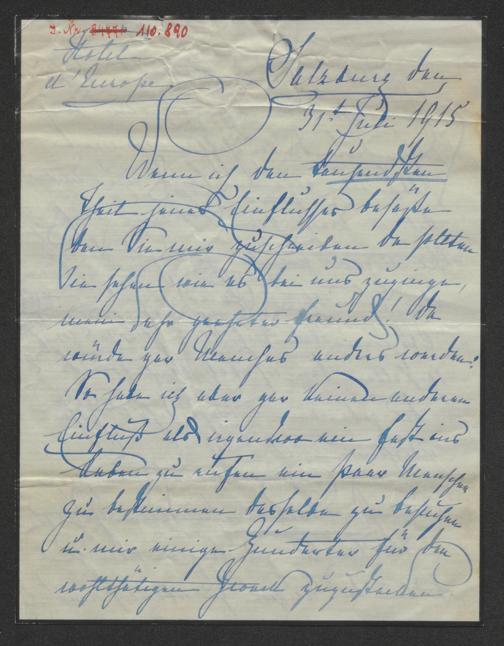 J. Nr. 110.890
Hotel
d'Europe
Salzburg den
31t Juli 1915
Wenn ich den tausendsten
Theil jenes Einflusses besäße
den Sie mir zuschreiben da sollten
Sie sehen wie es bei uns zuginge,
mein sehr geehrter Freund! Da
würde gar Manches anders werden.
So habe ich aber gar keinen anderen
Einfluß als irgendwo ein Fest ins
Leben zu rufen ein paar Menschen
zu bestimmen dasselbe zu besuchen
u. mir einige Hunderter für den
wohlthätigen Zweck zuzustecken